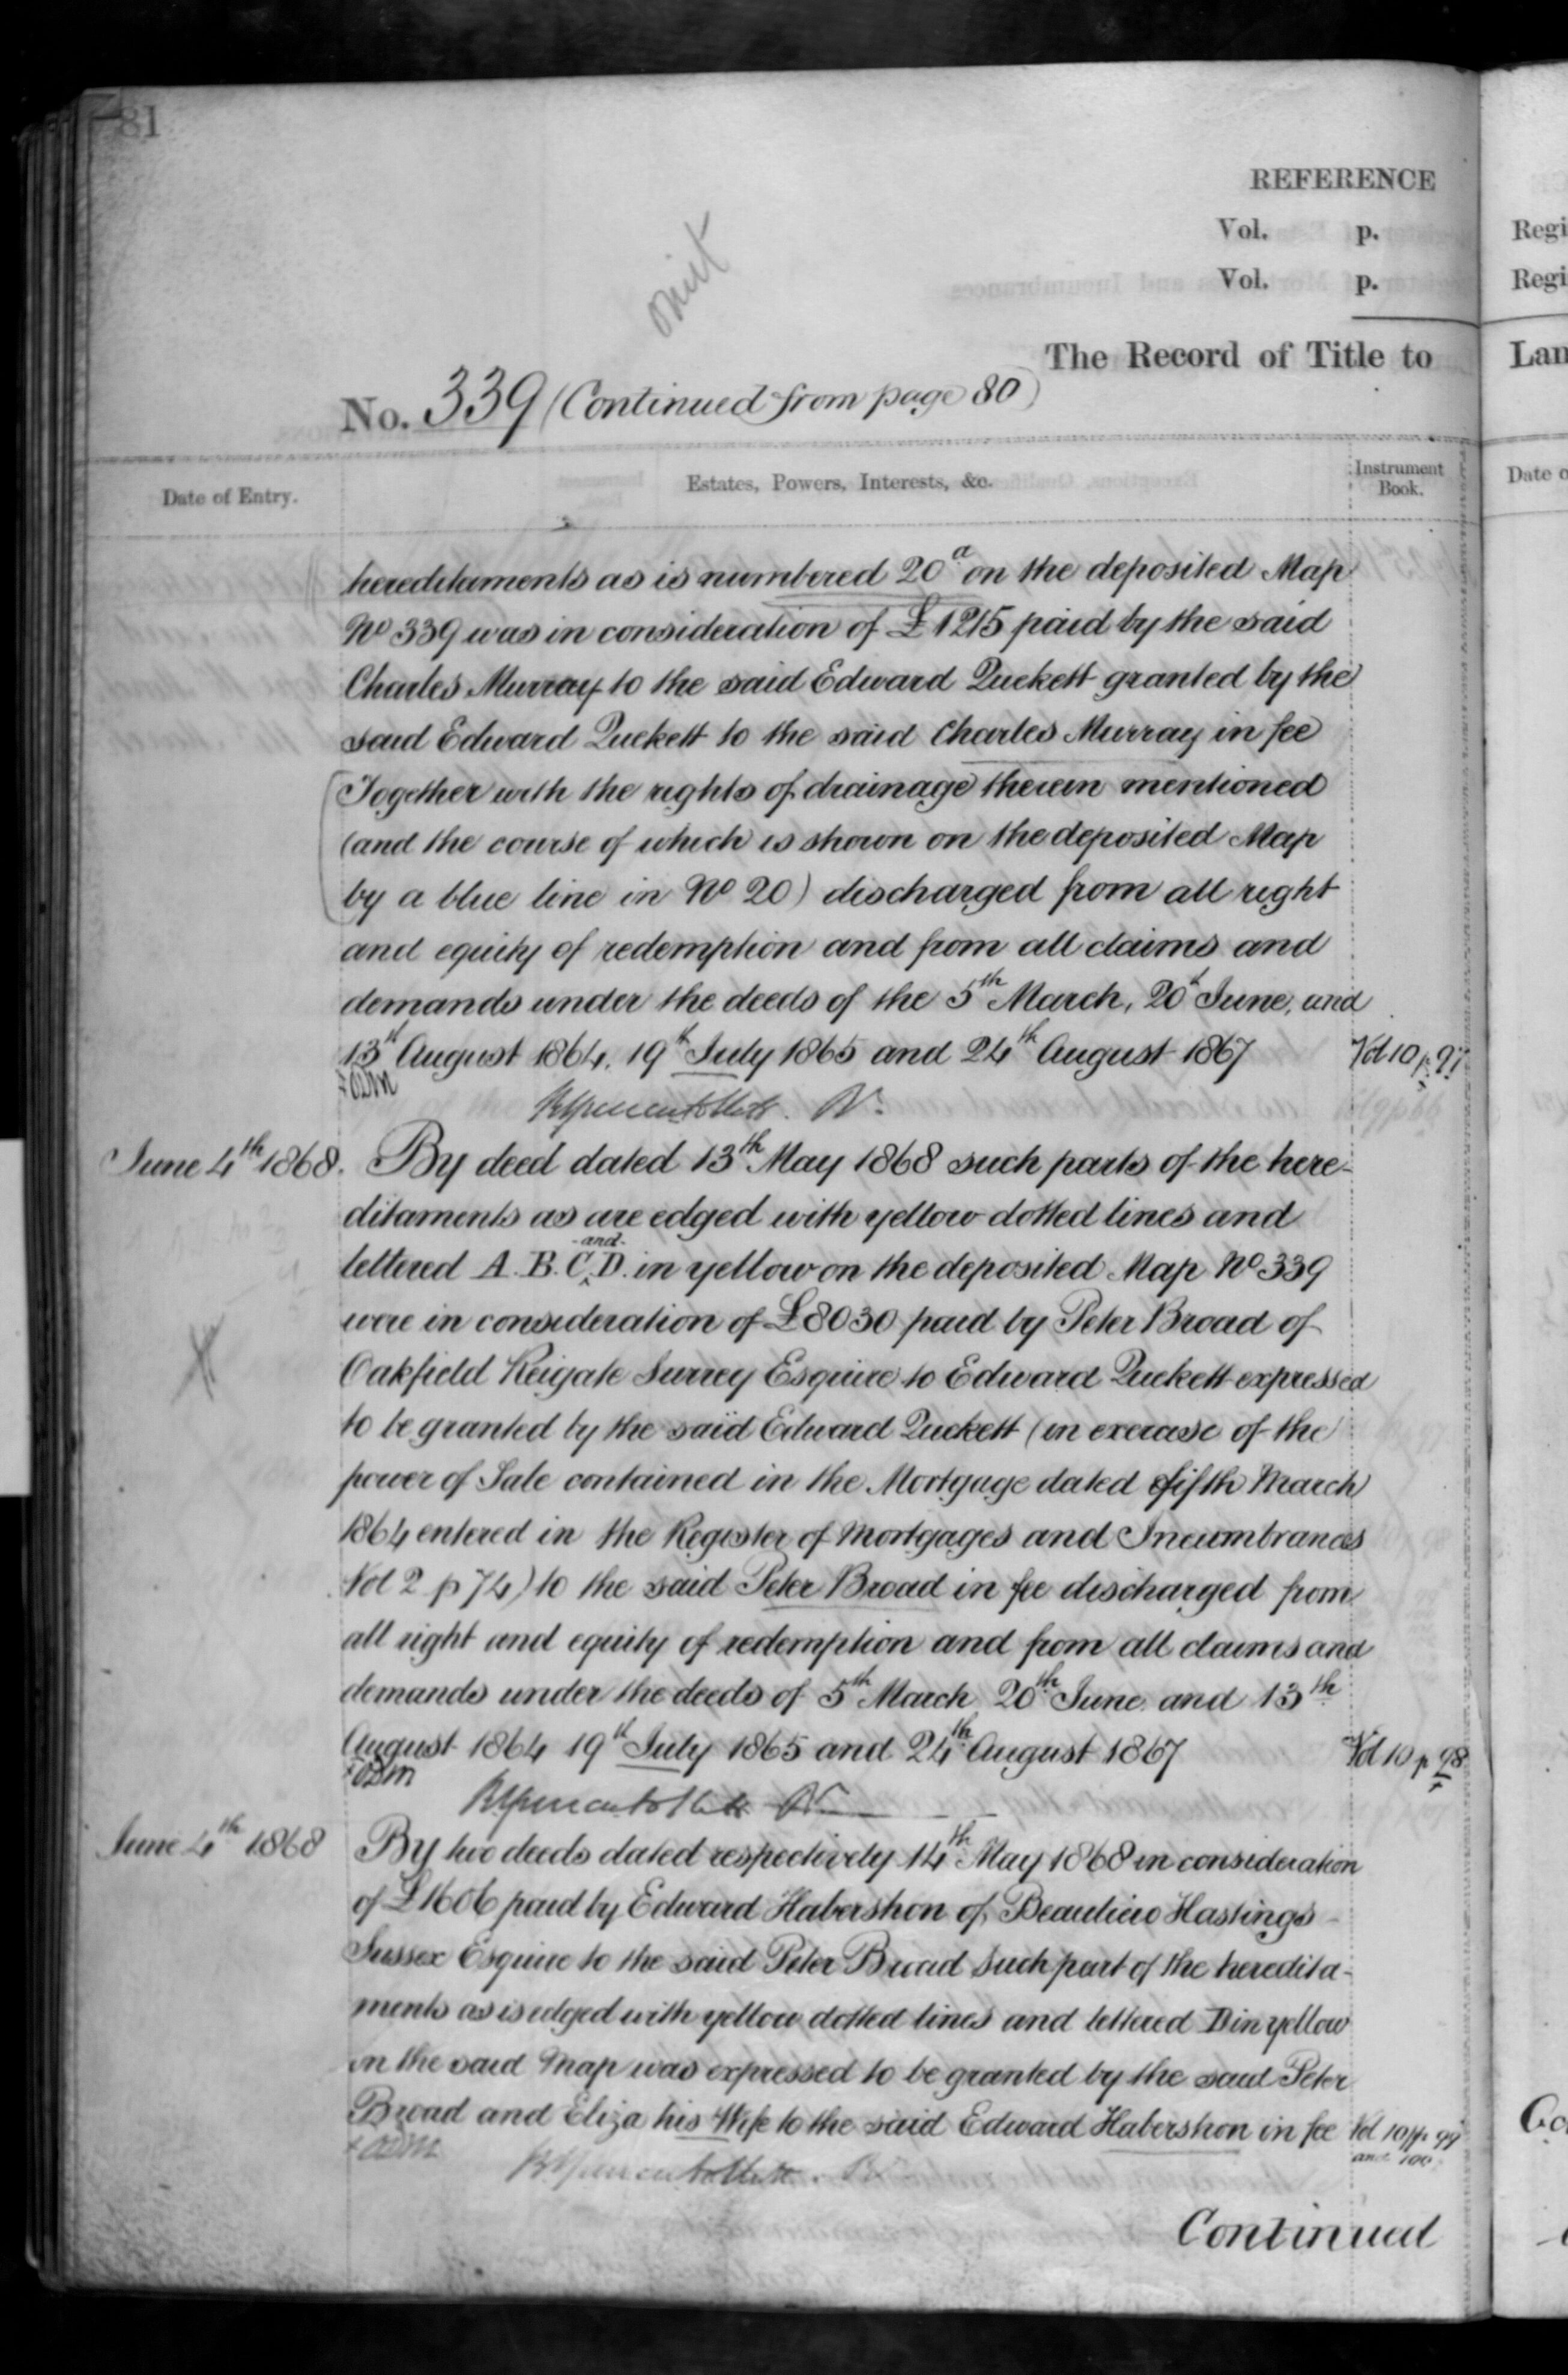 81
REFERENCE
Vol. p.
Vol. p.
omit
The Record of Title to
No. 339 (Continued from page 80)
Date of Entry.
Estates, Powers, Interests, &c.
Instrument Book.
hereditaments as is numbered 20a on the deposited Map
No 339 was in consideration of £1215 paid by the said
Charles Murray to the said Edward Quekett granted by the
said Edward Quekett to the said Charles Murray in fee
Together with the rights of drainage therein mentioned
(and the course of which is shown on the deposited Map
by a blue line in No 20) discharged from all right
and equity of redemption and from all claims and
demands under the deeds of the 5th March, 20th June, and
13th August 1864, 19th July 1865 and 24th August 1867 Vol 10 p. 97
June 4th 1868. By deed dated 13th May 1868 such parts of the here-
ditaments as are edged with yellow dotted lines and
lettered A. B. C and D. in yellow on the deposited Map No 339
were in consideration of £8030 paid by Peter Broad of
Oakfield Reigate Surrey Esquire to Edward Quekett expressed
to be granted by the said Edward Quekett (in exercise of the
power of Sale contained in the Mortgage dated fifth March
1864 entered in the Register of Mortgages and Incumbrances
Vol 2 p 74) to the said Peter Broad in fee discharged from
all right and equity of redemption and from all claims and
demands under the deeds of 5th March 20th June and 13th
August 1864 19th July 1865 and 24th August 1867 Vol 10 p 98
June 4th 1868 By two deeds dated respectively 14th May 1868 in consideration
of £1606 paid by Edward Habershon of Beaulieu Hastings
Sussex Esquire to the said Peter Broad such part of the heredita-
ments as is edged with yellow dotted lines and lettered D in yellow
on the said Map was expressed to be granted by the said Peter
Broad and Eliza his Wife to the said Edward Habershon in fee Vol 10 pp. 99
and 100
Continued
Regi
Regi
Lan
Date o
Co